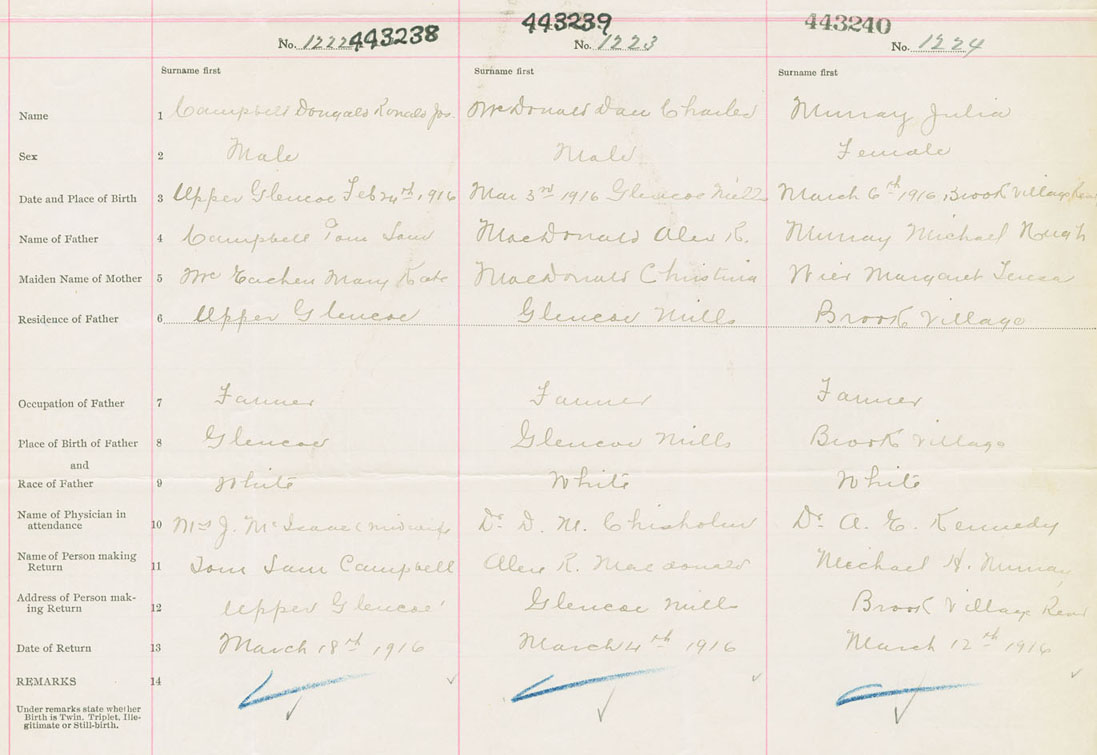 443239
443240
No. 1222 443238 No. 1223 No. 1224
Surname first Surname first Surname first
Name 1 Campbell Dougald Ronald Jos. McDonald Dan Charles Murray Julia
Sex 2 Male Male Female
Date and Place of Birth 3 Upper Glencoe Feb 24th, 1916 Mar 3rd 1916 Glencoe Mills March 6th 1916, Brook Village
Name of Father 4 Campbell Tom Sam MacDonald Alex R. Murray Michael Hugh
Maiden Name of Mother 5 McEachen Mary Kate MacDonald Christina Wier Margaret Teresa
Residence of Father 6 Upper Glencoe Glencoe Mills Brook Village
Occupation of Father 7 Farmer Farmer Farmer
Place of Birth of Father 8 Glencoe Glencoe Mills Brook Village
and
Race of Father 9 White White White
Name of Physician in
attendance 10 Mrs J. McIsaac (midwife Dr. D. M. Chisholm Dr. A. E. Kennedy
Name of Person making
Return 11 Tom Sam Campbell Alex R. Macdonald Michael H. Murray
Address of Person mak-
ing Return 12 Upper Glencoe Glencoe Mills Brook Village
Date of Return 13 March 18th 1916 March 4th 1916 March 12th 1916
REMARKS 14
Under remarks state whether
Birth is Twin, Triplet, Ille-
gitimate or Still-birth.